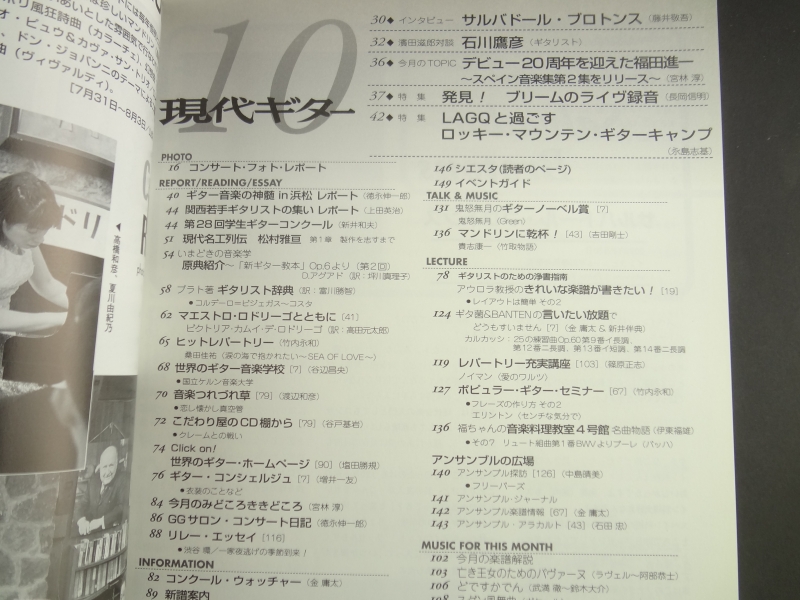 10
現代ギター
30 インタビュー サルバドール・ブロトンス (藤井敬吾)
32 濱田滋郎対談 石川鷹彦 (ギタリスト)
36 今月のTOPIC デビュー20周年を迎えた福田進一
〜スペイン音楽集第2集をリリース〜 (宮林 淳)
37 特集 発見！ ブリームのライヴ録音 (長岡信明)
42 特集 LAGQと過ごす
ロッキー・マウンテン・ギターキャンプ
(永島志基)
PHOTO
16 コンサート・フォト・レポート
REPORT/READING/ESSAY
40 ギター音楽の神髄 in 浜松 レポート (徳永伸一郎)
44 関西若手ギタリストの集い レポート (上田英治)
44 第28回学生ギターコンクール (新井和夫)
51 現代名工列伝 松村雅亘 第1章 製作を志すまで
54 いまどきの音楽学
原典紹介〜「新ギター教本」Op.6より (第2回)
D.アグアド (訳：坪川真理子)
58 プラト著 ギタリスト辞典 (訳：富川勝智)
●コルデーロ=ビジェガス〜コスタ
62 マエストロ・ロドリーゴとともに [41]
ビクトリア・カムイ・デ・ロドリーゴ (訳：高田元太郎)
65 ヒットレパートリー (竹内永和)
桑田佳祐 (涙の海で抱かれたい〜SEA OF LOVE〜)
68 世界のギター音楽学校 [7] (谷辺昌央)
●国立ケルン音楽大学
70 音楽つれづれ草 [79] (渡辺和彦)
●恋し懐かし真空管
72 こだわり屋のCD棚から [79] (谷戸基岩)
●クレームとの戦い
74 Click on!
世界のギター・ホームページ [90] (塩田勝規)
76 ギター・コンシェルジュ [7] (増井一友)
●衣装のことなど
84 今月のみどころききどころ (宮林 淳)
86 GGサロン・コンサート日記 (徳永伸一郎)
88 リレー・エッセイ [116]
●渋谷 環／一家夜逃げの季節到来！
INFORMATION
82 コンクール・ウォッチャー (金 庸太)
89 新譜案内
146 シエスタ(読者のページ)
149 イベントガイド
TALK & MUSIC
131 鬼怒無月のギターノーベル賞 [7]
鬼怒無月 (Green)
136 マンドリンに乾杯！ [43] (吉田剛士)
貴志康一 (竹取物語)
LECTURE
78 ギタリストのための浄書指南
アウロラ教授のきれいな楽譜が書きたい！ [19]
●レイアウトは簡単 その2
124 ギタ菌&BANTENの言いたい放題で
どうもすいません [7] (金 庸太 & 新井伴典)
カルカッシ：25の練習曲Op.60第9番イ長調、
第12番ニ長調、第13番イ短調、第14番ニ長調
119 レパートリー充実講座 [103] (篠原正志)
ノイマン (愛のワルツ)
127 ポピュラー・ギター・セミナー [67] (竹内永和)
●フレーズの作り方 その2
エリントン (センチな気分で)
136 福ちゃんの音楽料理教室4号館 名曲物語 (伊東福雄)
●その7 リュート組曲第1番BWVよりブーレ (バッハ)
アンサンブルの広場
140 アンサンブル探訪 [126] (中島晴美)
●フリーバーズ
141 アンサンブル・ジャーナル
142 アンサンブル楽譜情報 [67] (金 庸太)
143 アンサンブル・アラカルト [43] (石田 忠)
MUSIC FOR THIS MONTH
102 今月の楽譜解説
103 亡き王女のためのパヴァーヌ (ラヴェル〜阿部恭士)
106 どですかでん (武満 徹〜鈴木大介)
[7月31日〜8月3日
曲 (ヴィヴァルディ)。
、ドン・ジョバンニのテーマによ
オ・ビュウ&カヴァ・サン・トリ
ポリ風狂詩曲 (カラーチェ)
◀高橋和彦、夏川由紀乃